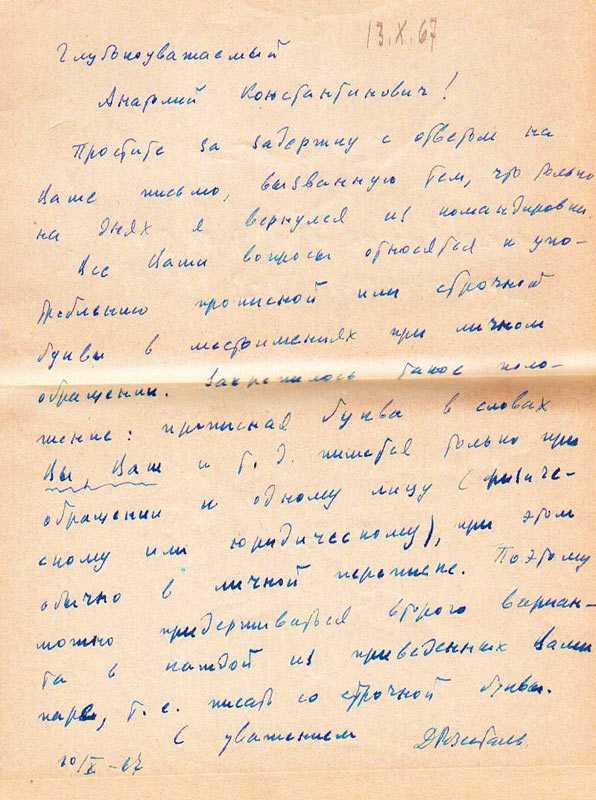 13.X.67
Глубокоуважаемый
Анатолий Константинович!
Простите за задержку с ответом на
Ваше письмо, вызванную тем, что только
на днях я вернулся из командировки.
Все Ваши вопросы относятся к упо-
треблению прописной или строчной
буквы в местоимениях при личном
обращении. Закрепилось такое поло-
жение: прописная буква в словах
Вы, Ваш и т. д. пишется только при
обращении к одному лицу (физиче-
скому или юридическому), при этом
обычно в личной переписке. Поэтому
можно придерживаться второго вариан-
та в каждой из приведенных Вами
пар, т. е. писать со строчной буквы.
С уважением Д Розенталь
10/X-67